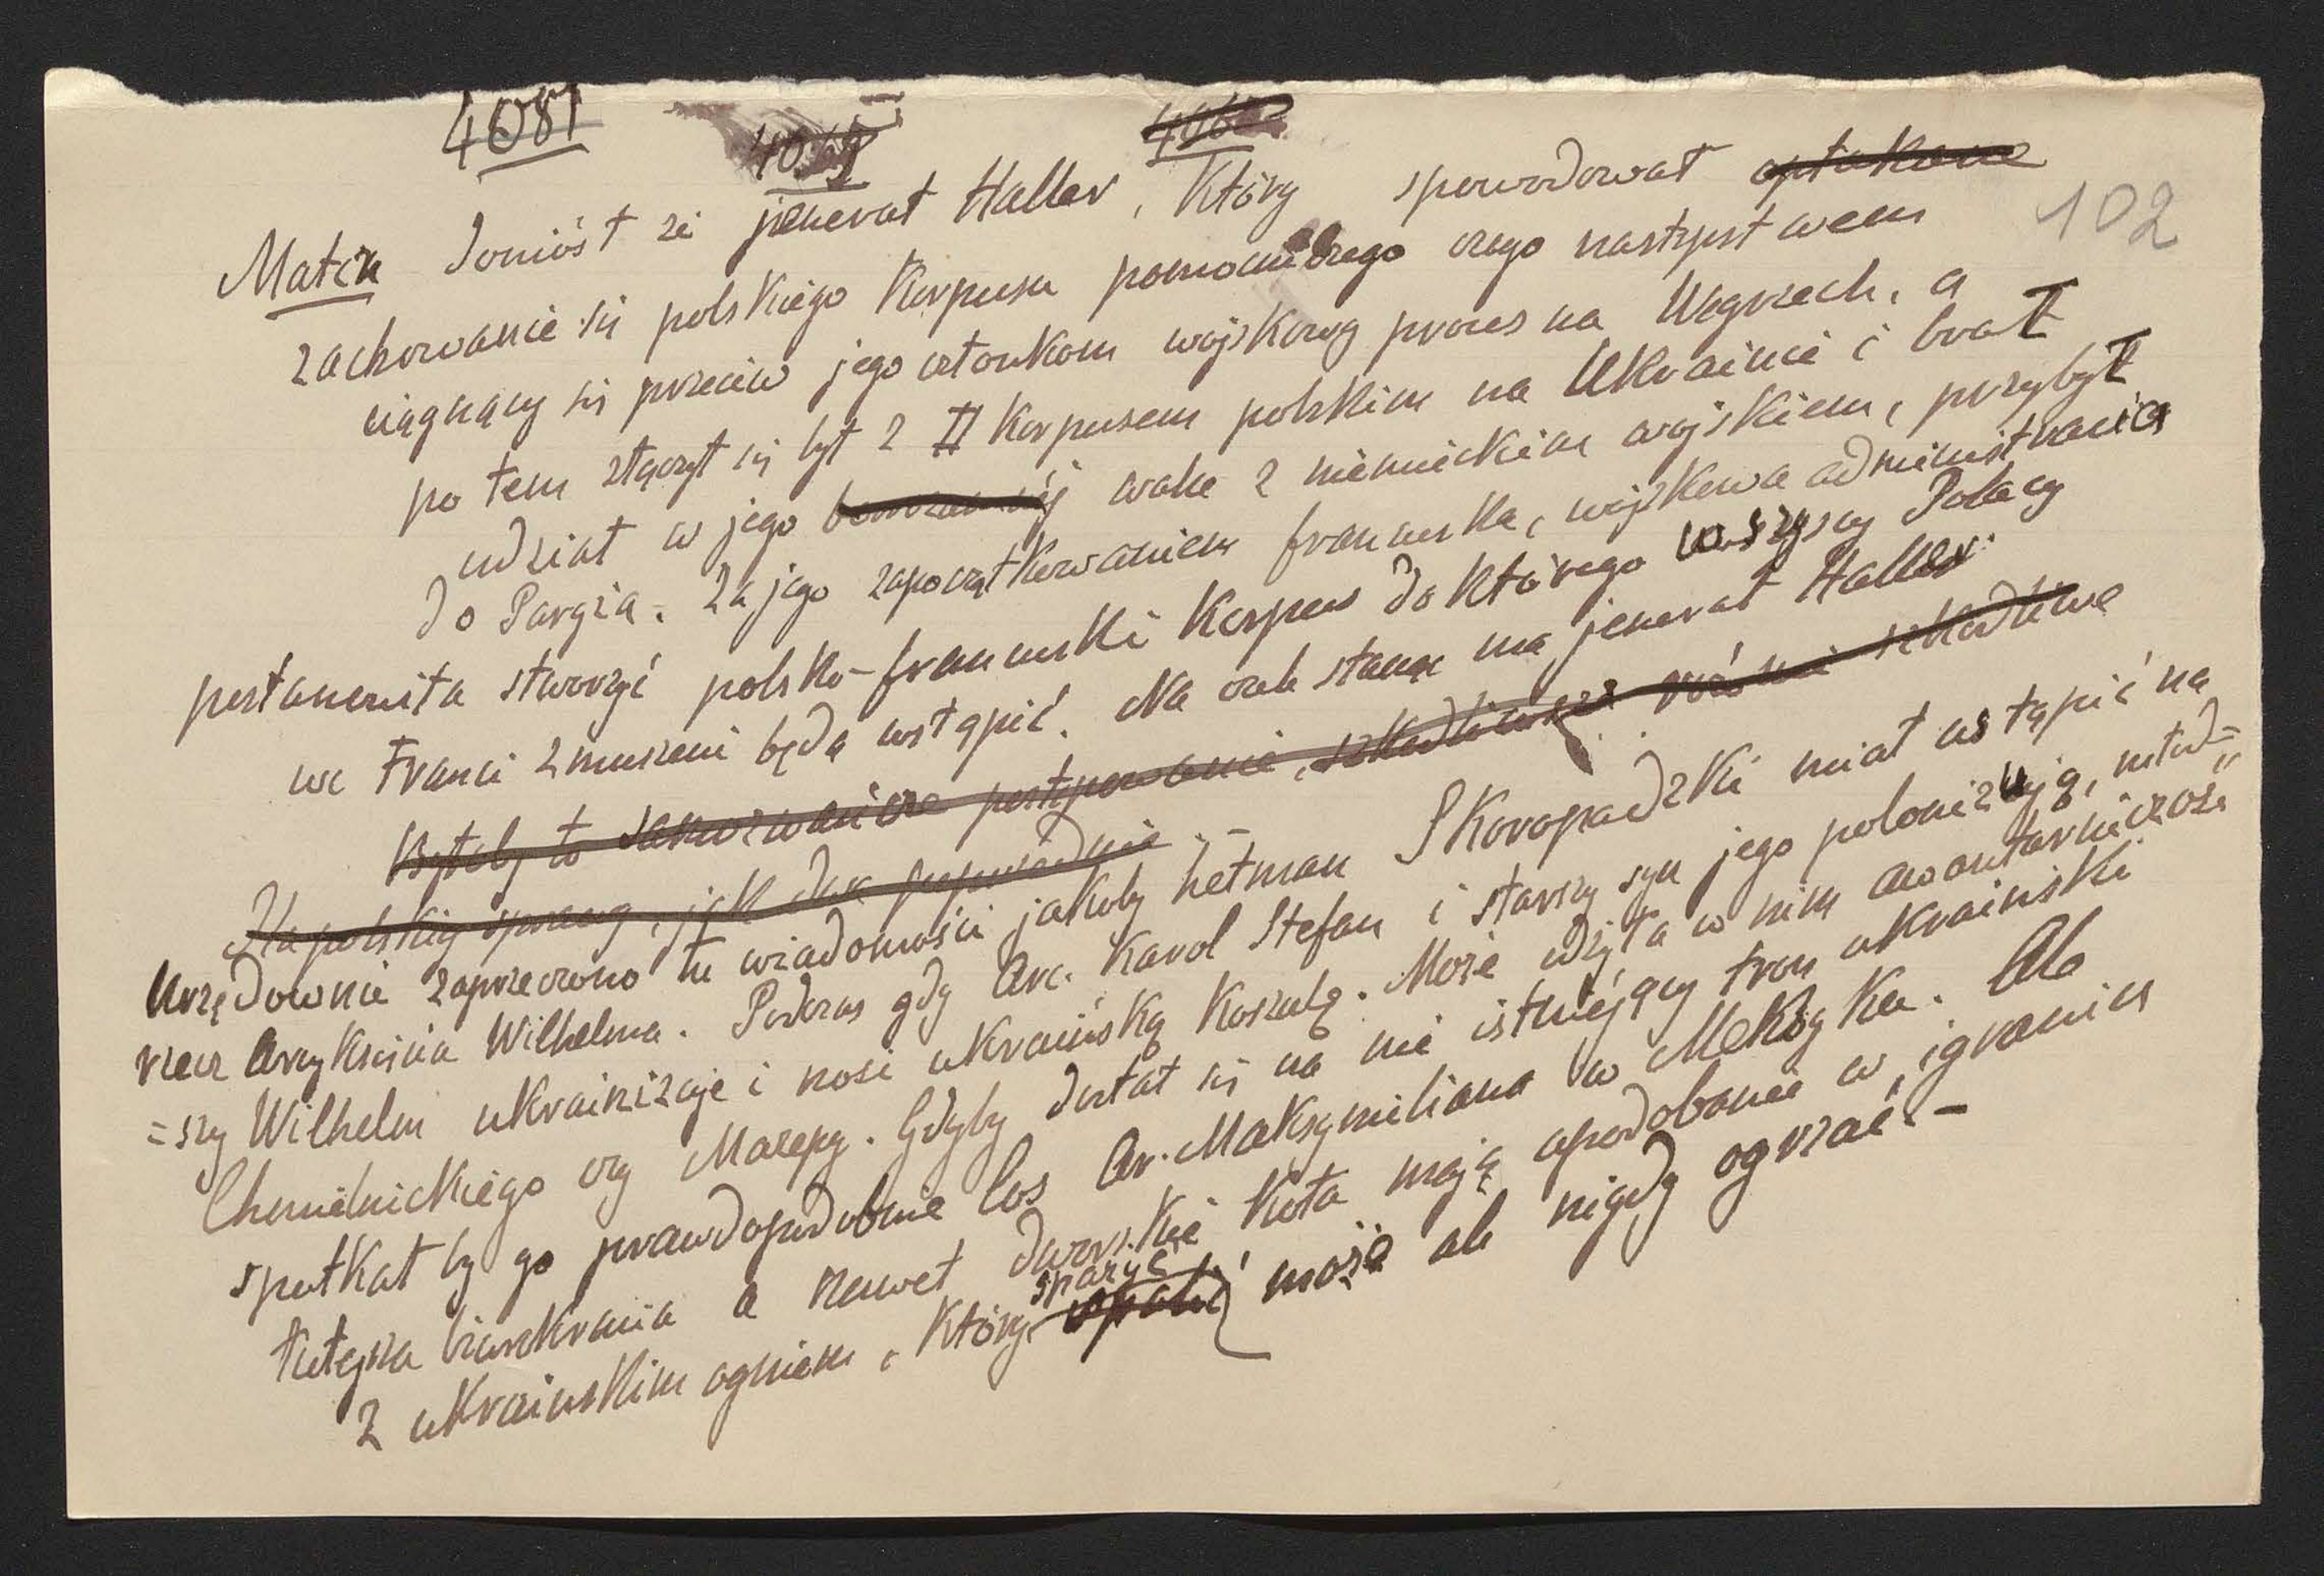 4081
102
Matin doniósł że jenerał Haller, który spowodował opłakane
zachowanie się polskiego Korpusu pomocniczego czego następstwem
ciągnący się przeciw jego członkom wojskowy proces na Węgrzech, a
po tem złączył się był z II Korpusem polskim na Ukrainie i brał
udział w jego walce z niemieckiem wojskiem, przybył
do Paryża. Za jego zapoczątkowaniem francuska, wojskowa administracia
postanowiła stworzyć polsko-francuski Korpus do którego wszyscy Polacy
we Franci zmuszeni będą wstąpić. Na czele stanąć ma jenerał Haller.
Byłoby to postępowanie, szkodliwe
dla polskiej sprawy, jak poprzednie. –
Urzędownie zaprzeczono tu wiadomości jakoby hetman Skoropadzki miał ustąpić na
rzecz Arcyksięcia Wilhelma. Podczas gdy Arc. Karol Stefan i starszy syn jego polonizują, młod=
=szy Wilhelm ukrainizuje i nosi ukraińską Koszulę. Może odżyła w nim awanturniczość
Chmielnickiego czy Mazepy. Gdyby dostał się na nie istniejący tron ukraiński
spotkał by go prawdopodobnie los Ar. Maksymiliana w Meksyku. Ale
tutejsza biurokracia a nawet dworskie Koła mają upodobanie w igraniu
z ukraińskim ogniem, który sparzyć może ale nigdy ogrzać. –